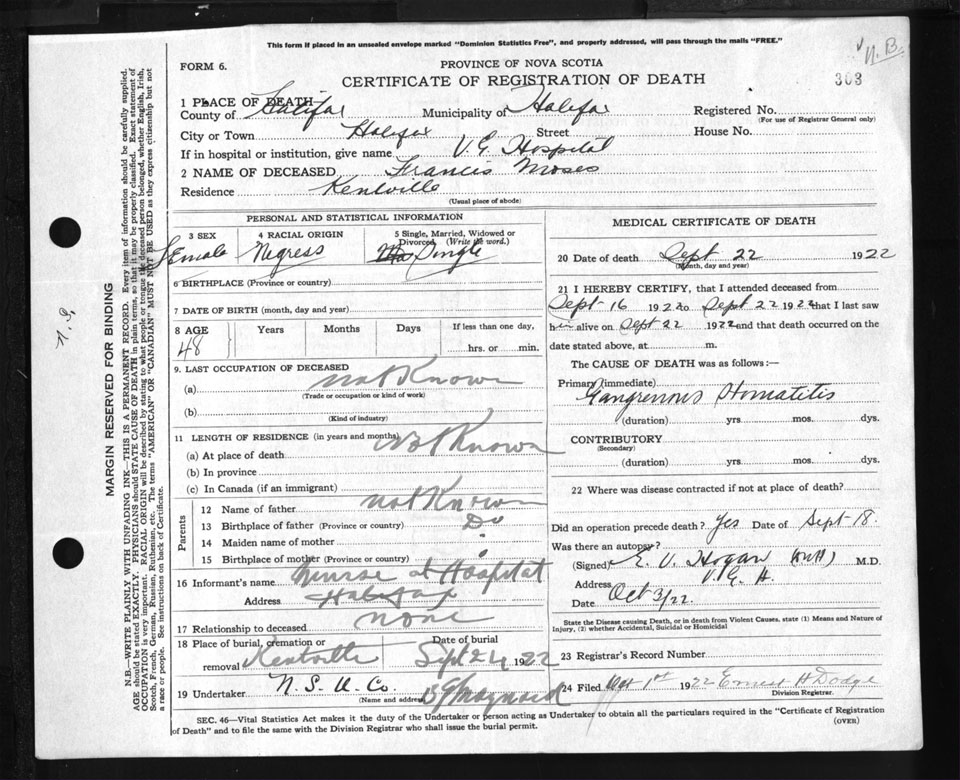 This form if placed in an unsealed envelope marked "Dominion Statistics Free", and properly addressed, will pass through the mails "FREE."
N.B.
303
FORM 6.
PROVINCE OF NOVA SCOTIA
CERTIFICATE OF REGISTRATION OF DEATH
1 PLACE OF DEATH
County of Halifax Municipality of Halifax Registered No.
(For use of Registrar General only)
City or Town Halifax Street House No.
If in hospital or institution, give name V. G. Hospital
2 NAME OF DECEASED Francis Moses
Residence Kentville
(Usual place of abode)
PERSONAL AND STATISTICAL INFORMATION
3 SEX 4 RACIAL ORIGIN 5 Single, Married, Widowed or Divorced (Write the word.)
Female Negress Single
6 BIRTHPLACE (Province or country)
7 DATE OF BIRTH (month, day and year)
8 AGE Years Months Days If less than one day,
48 hrs. or min.
9. LAST OCCUPATION OF DECEASED
(a) not Known
(Trade or occupation or kind of work)
(b)
(Kind of industry)
11 LENGTH OF RESIDENCE (in years and months)
(a) At place of death Not Known
(b) In province
(c) In Canada (if an immigrant)
Parents
12 Name of father not Known
13 Birthplace of father (Province or country) Do
14 Maiden name of mother
15 Birthplace of mother (Province or country)
16 Informant's name Nurse at Hospital
Address Halifax
17 Relationship to deceased none
18 Place of burial, cremation or removal Kentville Date of burial Sept 24 1922
19 Undertaker N. S. U. Co.
(Name and address)
MEDICAL CERTIFICATE OF DEATH
20 Date of death Sept 22 1922
(Month, day and year)
21 I HEREBY CERTIFY, that I attended deceased from
Sept 16 1922 to Sept 22 1922 that I last saw
her alive on Sept 22 1922 and that death occurred on the
date stated above, at m.
The CAUSE OF DEATH was as follows:—
Primary (immediate)
Gangrenous Stomatitis
(duration) yrs. mos. dys.
CONTRIBUTORY
(Secondary)
(duration) yrs. mos. dys.
22 Where was disease contracted if not at place of death?
Did an operation precede death? Yes Date of Sept 18.
Was there an autopsy?
(Signed) E. V. Hogan M.D.
Address V. G. H.
Date Oct 3/22.
State the Disease causing Death, or in death from Violent Causes, state (1) Means and Nature of Injury, (2) whether Accidental, Suicidal or Homicidal
23 Registrar's Record Number
24 Filed Oct 1st 1922 Ernest H Dodge
Division Registrar.
SEC. 46—Vital Statistics Act makes it the duty of the Undertaker or person acting as Undertaker to obtain all the particulars required in the "Certificate of Registration
of Death" and to file the same with the Division Registrar who shall issue the burial permit.
(OVER)
MARGIN RESERVED FOR BINDING
N.B.—WRITE PLAINLY WITH UNFADING INK—THIS IS A PERMANENT RECORD. Every item of information should be carefully supplied.
AGE should be stated EXACTLY. PHYSICIANS should STATE CAUSE OF DEATH in plain terms, so that it may be properly classified. Exact statement of
OCCUPATION is very important. RACIAL ORIGIN will be described by stating to what people or tongue the deceased person belonged, whether English, Irish,
Scotch, French, German, Russian, Ruthenian, etc. The terms "AMERICAN" OR "CANADIAN" MUST NOT BE USED as they express citizenship but not
a race or people. See instructions on back of Certificate.